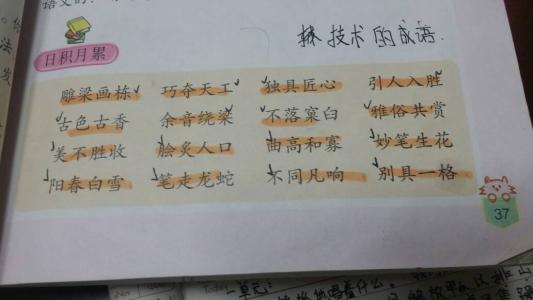 技术的成语.
日积月累
雕梁画栋 巧夺天工 独具匠心 引人入胜
古色古香 余音绕梁 不落窠臼 雅俗共赏
美不胜收 脍炙人口 曲高和寡 妙笔生花
阳春白雪 笔走龙蛇 不同凡响 别具一格
37
一单元: